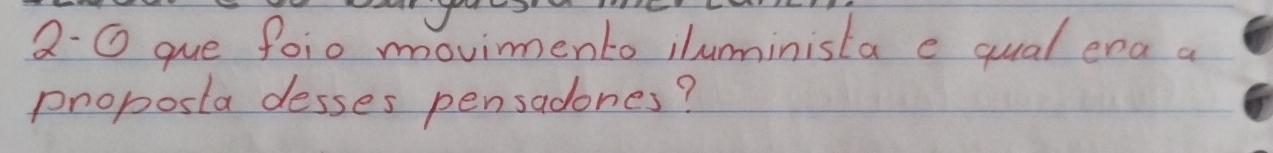 2-O que foi o movimento iluminista e qual era a
proposta desses pensadores?